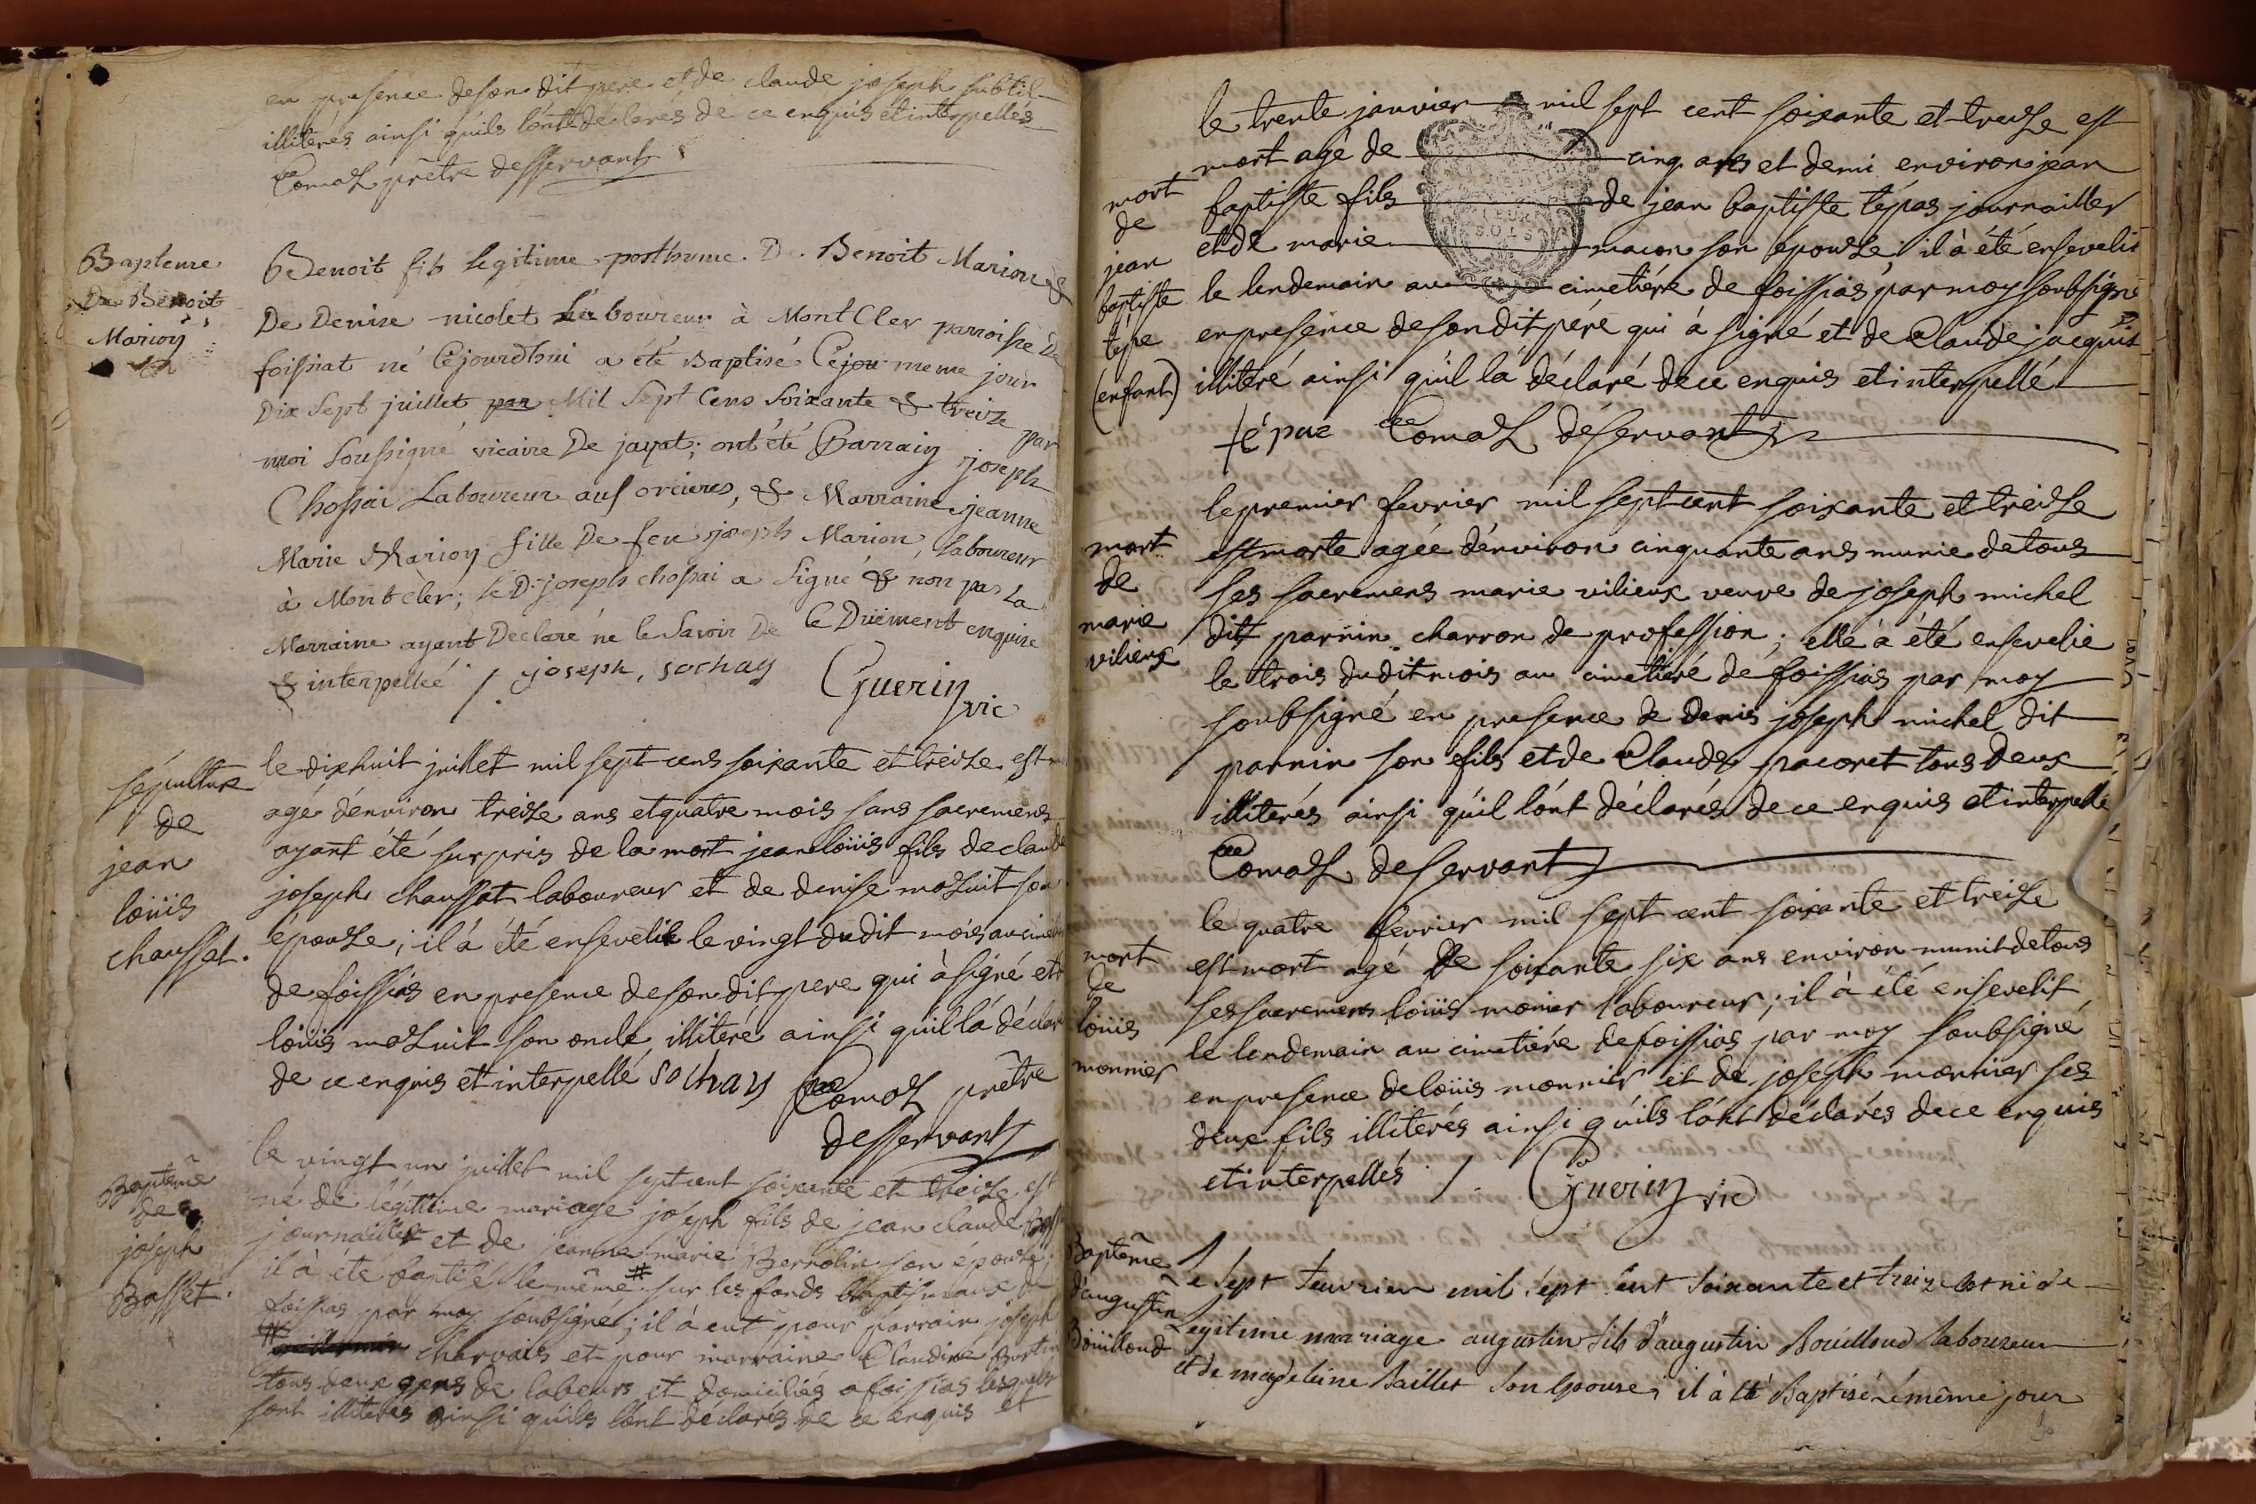 en presence de son dit pere et de claude joseph subtil
illitérés ainsi quils lont déclarés de ce enquis et interpellés
Comaz prêtre desservant
Bapteme
De Benoit
Marion
Benoit fils legitime posthume De Benoit Marion &
De Denise nicolet Laboureur à MontCler parroisse De
foissiat né Cejourdhui a été Baptisé Ce jour meme jour
Dix Sept juillet par Mil Sept Cens Soixante & treize par
moi Soussigné vicaire De jayat; ont été Parrain joseph
Chossai Laboureur aus orcieres, & Marraine jeanne
Marie Marion fille De feu joseph Marion, laboureur
à Montcler; le D. joseph chossai a Signé & non pas la
Marraine ayant Declaré ne le Savoir De Ce Düement enquise
& interpellée /. joseph, sochay Guerin vic
sépulture
de
jean
loüis
chaussat.
le dixhuit juillet mil sept cens soixante et treize est
agé denviron treize ans et quatre mois sans sacremens
ayant été surpris de la mort jean loüis fils de claude
joseph chaussat laboureur et de denise mazuit son
épouze; il à été ensevelit le vingt du dit mois au cimet
de foissias en presence de son dit pere qui à signé et
loüis mazuit son oncle illitéré ainsi quil la déclar
de ce enquis et interpellé sochay Comaz prêtre
desservant
Baptême
de
joseph
Basset.
le vingt un juillet mil sept cent soixante et treize est
né de légitime mariage joseph fils de jean claude Bass
journaillier et de jeanne marie Berrolin son épouze;
il à été baptisé le même # sur les fonds baptismaux de
foissias par moy soubsigné; il à eut pour parrain joseph
# charvais et pour marraine Claudine
tous deux gens de labeurs et domiciliés a foissias lesquels
sont illitérés ainsi quils lont déclarés de ce enquis et
mort
de
jean
baptiste
tépe
(enfant)
le trente janvier mil sept cent soixante et treize est
mort agé de cinq ans et demi environ jean
baptiste fils de jean baptiste tépas journailler
et de marie macon son épouze; il à été ensevelit
le lendemain au cimetiére de foissias par moy soubsigné
en presence de son dit pére qui à signé et de Claude jacquis
illitéré ainsi quil la déclaré de ce enquis et interpellé
tépae Comaz déservant
mort
de
marie
vilieux
le premier fevrier mil sept cent soixante et treize
est morte agée denviron cinquante ans munie de tous
ses sacremens marie vilieux veuve de joseph michel
dit parnin charron de profession; elle à été ensevelie
le trois du dit mois au cimetiére de foissias par moy
soubsigné en presence de denis joseph michel dit
parnin son fils et de Claude pacoret tous deux
illitérés ainsi quil lont déclarés de ce enquis et interpellé
Comaz deservant
mort
de
loüis
monnier
le quatre fevrier mil sept cent soixante et treize
est mort agé de soixante six ans environ munit de tous
ses sacremens loüis monier laboureur; il à été ensevelit
le lendemain au cimetiére de foissias par moy soubsigné
en presence de loüis monnier et de joseph monnier ses
deux fils illitérés ainsi quils lont déclarés de ce enquis
et interpellés /. Guerin vic
Baptême
d'augustin
Boüilloud
Le sept feuvrier mil sept cent soixante et treize est né de
Legitime mariage augustin fils d'augustin Bouilloud laboureur
et de madeleine Baillet son epouse; il à été Baptisé le même jour